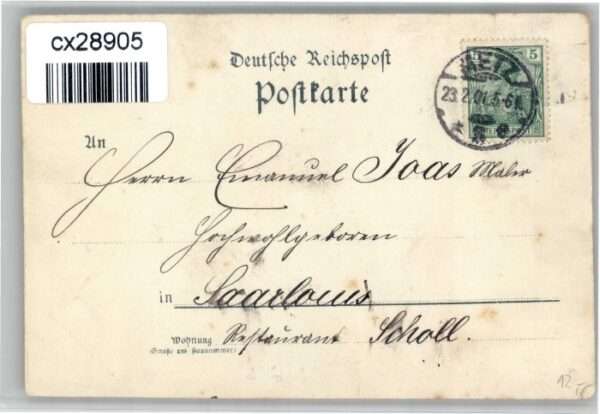 cx28905
Deutsche Reichspost
Postkarte
5
METZ
23.2.01.5-6N
An
Herrn Emanuel Joas Maler
Hochwohlgeboren
in Saarlouis
Wohnung
Restaurant Scholl.
12,-